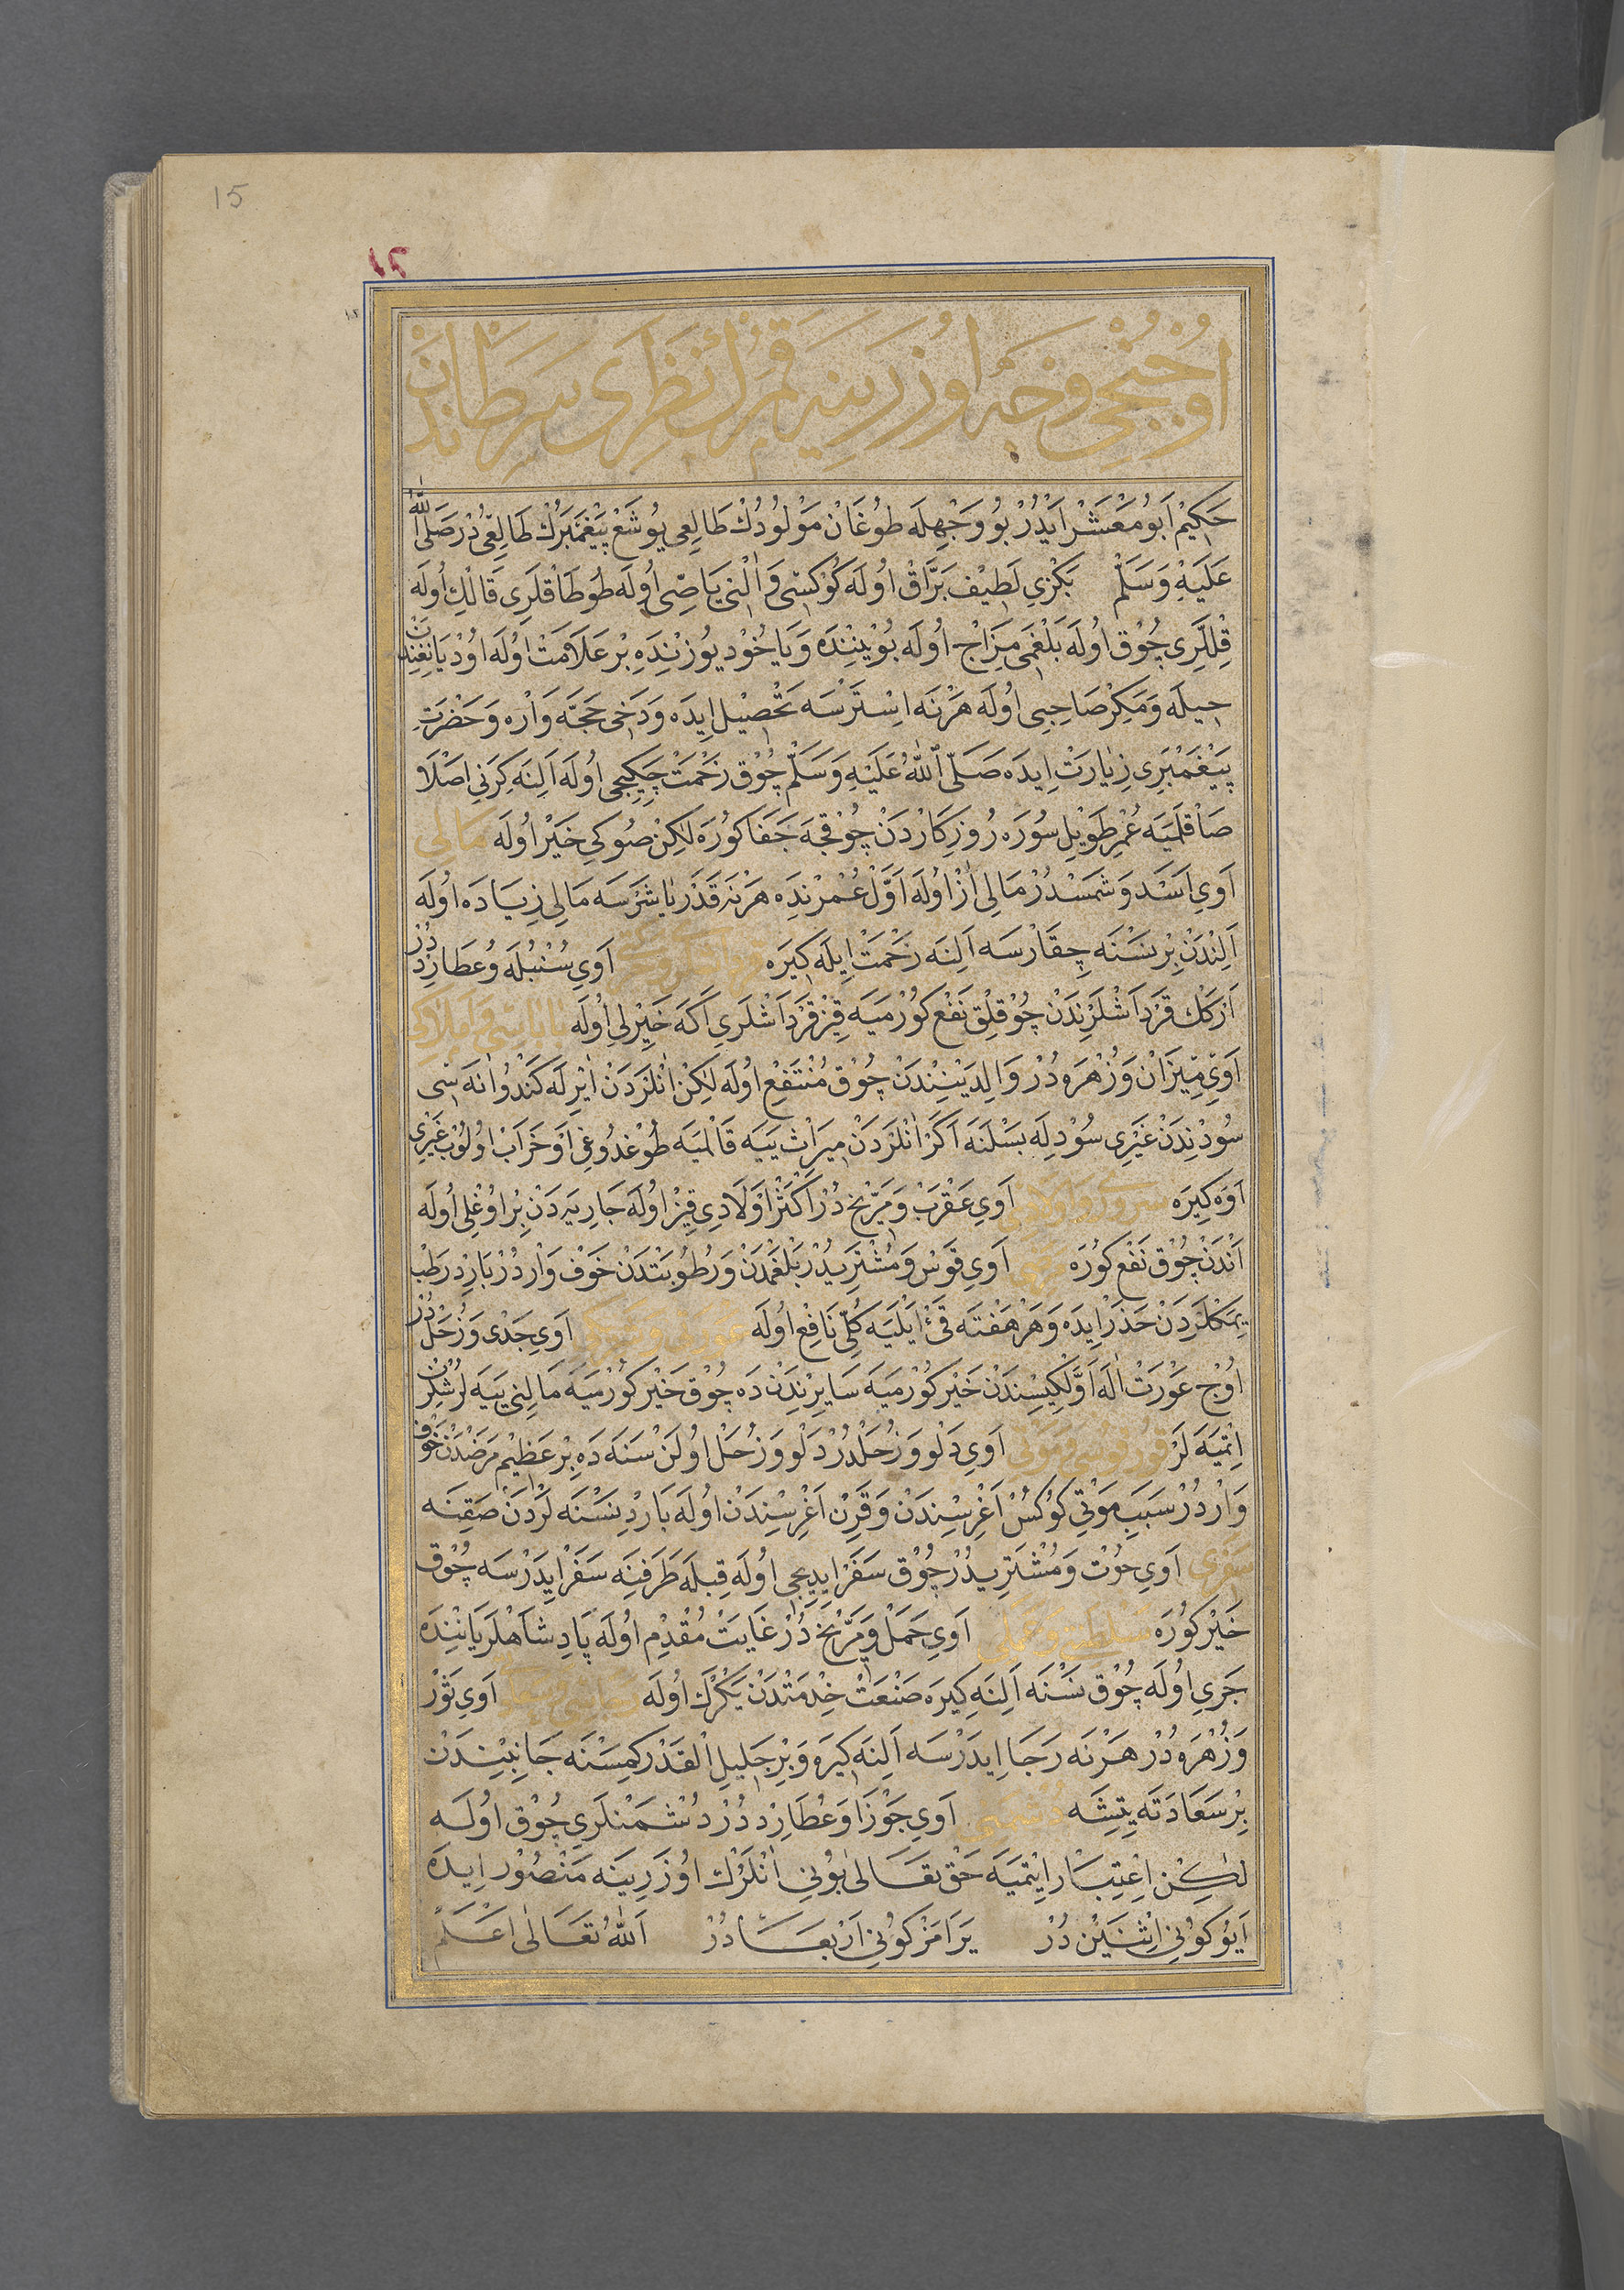 15
١٥
اُوْچُنْجِي وَجْه اُوزَرِينَه قَمَرْكْ نَظَرِى سَرَطَانْدَنْ
حَكِيْم اَبُو مَعْشَرْ اَيْدُرْ بُو وَجْهِلَه طُوغَانْ مَوْلُودُكْ طَالِعِى يُوشَعْ پَيْغَمْبَرُكْ طَالِعِى دُرْ صَلَّى اللّٰهُ
عَلَيْهِ وَسَلَّمْ بَكْزِي لَطِيْف بَرَّاقْ اُولَه كُوْكسِى وَ اٰلْنِى يَاصِّى اُولَه طُوطَاقْلَرِى قَالِكْ اُولَه
قِلْلَرِى چُوْق اُولَه بَلْغَمِى مِزَاجْ اُولَه بُوْيْنِنْدَه وَيَا خُوْد يُوزِنْدَه بِرْ عَلَامَتْ اُولَه اُوْدْ يَانِغِنْدَنْ
حِيلَه وَمَكِرْ صَاحِبِى اُولَه هَرْنَه اِسْتَرْسَه تَحْصِيْل اِيدَه وَدَخِى حَجَّه وَارَه وَحَضْرَتِ
پَيْغَمْبَرِى زِيَارَتْ اِيدَه صَلَّى اللّٰهُ عَلَيْهِ وَسَلَّمْ چُوْق زَحْمَتْ چَكِيجِى اُولَه اَلِنَه كِرَنِى اَصْلَا
صَاقْلَمَيَه عُمْرِ طَوِيْل سُورَه رُوزِكَارْدَنْ چُوْقْجَه جَفَا كُورَه لٰكِنْ صُوكِى خَيْر اُولَه مَالِى
اَوِي اَسَد وَشَمْسْدُرْ مَالِى اَزْ اُولَه اَوَّلْ عُمْرِنْدَه هَرْنَه قَدَرْ يَاشَرْسَه مَالِى زِيَادَه اُولَه
اَلِنْدَنْ بِرْنَسْنَه چِقَارْسَه اَلِنَه زَحْمَتْ اِيلَه كِيرَه اَوِي سُنْبُلَه وَعُطَارِدْدُرْ
اَرْكَكْ قَرْدَاشْلَرِنْدَنْ چُوْقْلِقْ نَفْع كُورْمَيَه قِيزْ قَرْدَاشْلَرِى اَكَه خَيْرلِى اُولَه بَابَاسِى وَ اَمْلَاكِى
اَوِي مِيْزَانْ وَزُهْرَه دُرْ وَالِدَيْنِنْدَنْ چُوْق مُنْتَفِعْ اُولَه لٰكِنْ اٰنْلَرْدَنْ اَيْرِلَه كَنْدُو اٰنَه سِى
سُودِنْدَنْ غَيْرِى سُوْدِلَه بَسْلَنَه اَكَرْ اٰنْلَرْدَنْ مِيرَاث يَيَه قَالْمَيَه طُوْغْدُوغِى اَوْ خَرَابْ اُولُوبْ غَيْرِى
اَوَه كِيرَه سُرُورِى وَاَوْلَادِى اَوِي عَقْرَبْ وَمِرِّيْخ دُرْ اَكْثَرْ اَوْلَادِى قِيزْ اُولَه جَارِيَه دَنْ بِرْ اُوغْلِى اُولَه
اَنْدَنْ چُوْق نَفْع كُورَه مَرَضِى اَوِي قَوْس وَمُشْتَرِيدُرْ بَلْغَمْدَنْ وَرُطُوبَتْدَنْ خَوْف وَارْدُرْ بَارِدْ رَطْب
يِمَكْلَرْدَنْ حَذَرْ اِيدَه وَهَرْ هَفْتَه قَىْٔ اَيْلَيَه كُلِّى نَافِعْ اُولَه اَوِي جَدْى وَزُحَلْدُرْ
اُوْچ عَوْرَتْ اٰلَه اَوَّلْكِيسِنْدَنْ خَيْر كُورْمَيَه سَايِرِنْدَنْ دَه چُوْق خَيْر كُورْمَيَه مَالِنِى يِيَه لَرْ شُكِرْ
اِتْمَيَه لَرْ قُورْقُوسِى وَمَوْتِى اَوِي دَلْو وَزُحَلْدُرْ دَلْو وَزُحَلْ اُولَنْ سَنَه دَه بِرْ عَظِيْم مَرَضْدَنْ خَوْف
وَارْدُرْ سَبَبِ مَوْتِى كُوكُسْ اَغْرِسِنْدَنْ وَقَرِنْ اَغْرِسِنْدَنْ اُولَه بَارِدْ نَسْنَه لَرْدَنْ صَقِنَه
سَفَرِى اَوِي حُوْت وَمُشْتَرِيدُرْ چُوْق سَفَرْ اِيدِيجِى اُولَه قِبْلَه طَرَفِنَه سَفَرْ اِيدَرْسَه چُوْق
خَيْر كُورَه سَلْطَنَتِى وَعَمَلِى اَوِي حَمَلْ وَمِرِّيْخْ دُرْ غَايَتْ مُقْدِمْ اُولَه پَادِشَاهْلَرْ يَانِنْدَه
جَرِي اُولَه چُوْق نَسْنَه اَلِنَه كِيرَه صَنْعَتْ خِدْمَتْدَنْ يَكْرَكْ اُولَه اَوِي ثَوْر
وَزُهْرَه دُرْ هَرْنَه رَجَا اِيدَرْسَه اَلِنَه كِيرَه وَبِرْ جَلِيلِ الْقَدْر كِمِسْنَه جَانِبِنْدَنْ
بِرْ سَعَادَتَه يِتِشَه دُشْمَنِى اَوِي جَوْزَا وَعُطَارِدْ دُرْ دُشْمَنْلَرِى چُوْق اُولَه
لٰكِنْ اِعْتِبَارْ اِيْتْمَيَه حَقْ تَعَالٰى بُونِى اٰنْلَرُكْ اُوزَرِينَه مَنْصُورْ اِيدَه
اَيُو كُونِى اِثْنَيْن دُرْ يَرَامَزْ كُونِى اَرْبَعَا دُرْ اَللّٰهُ تَعَالٰى اَعْلَمْ